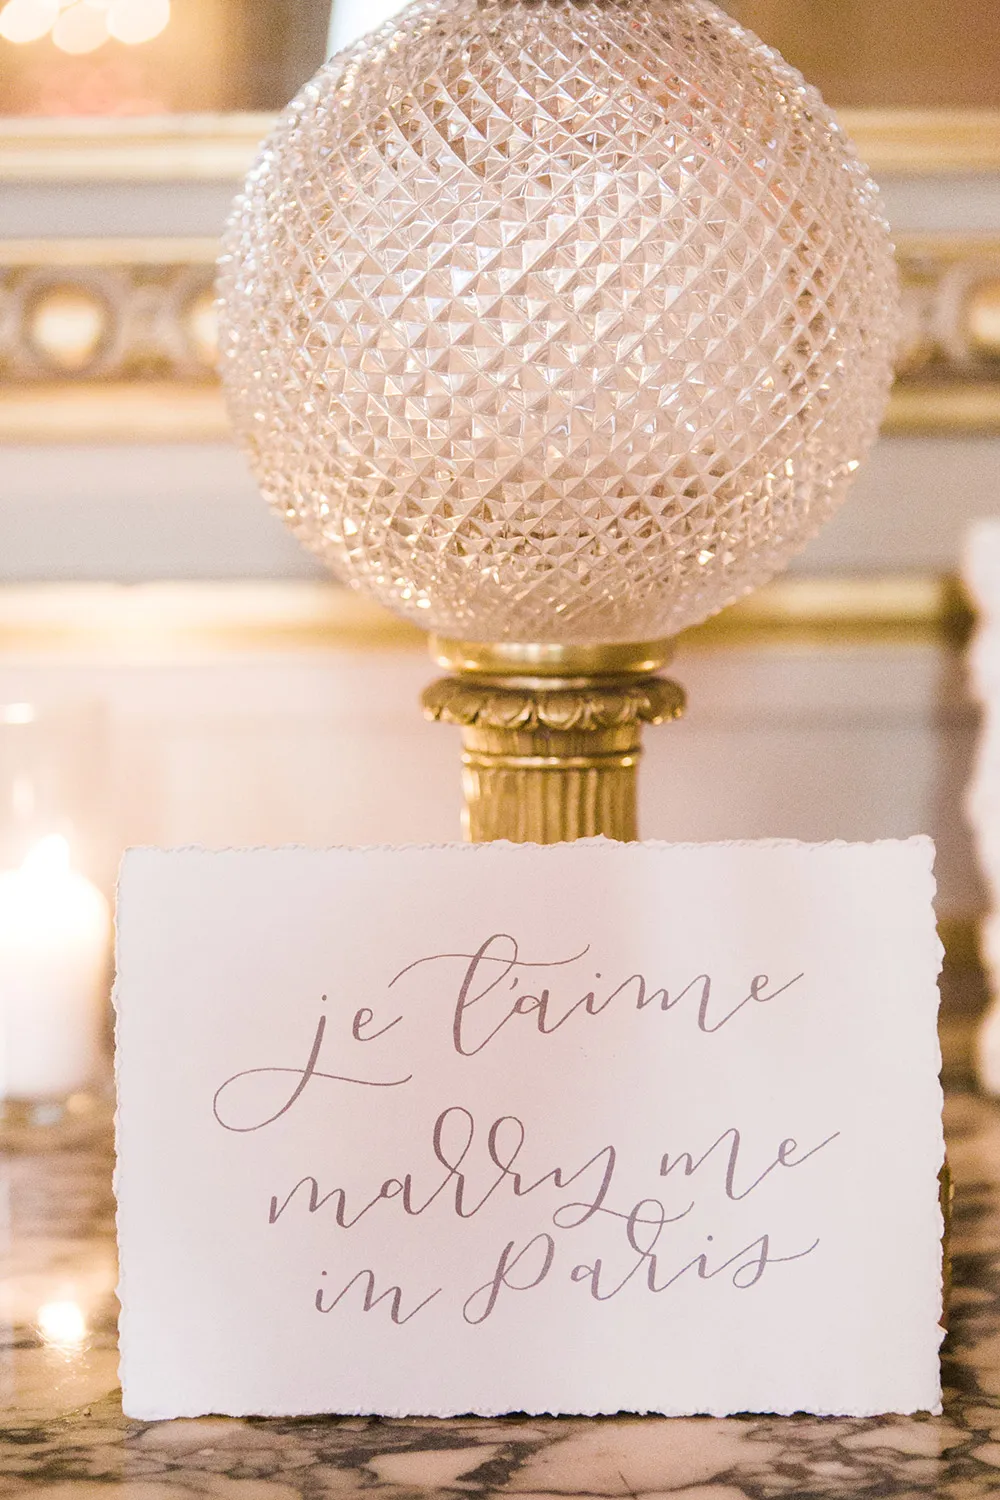 je t'aime
marry me
in Paris